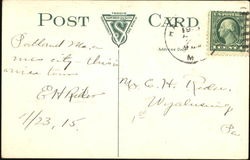 POST CARD
Portland Me,
nice city - this is
nice town
E H Rider
9/23, 15.
Mr. C. H. Rider,
Wyalusing
Pa